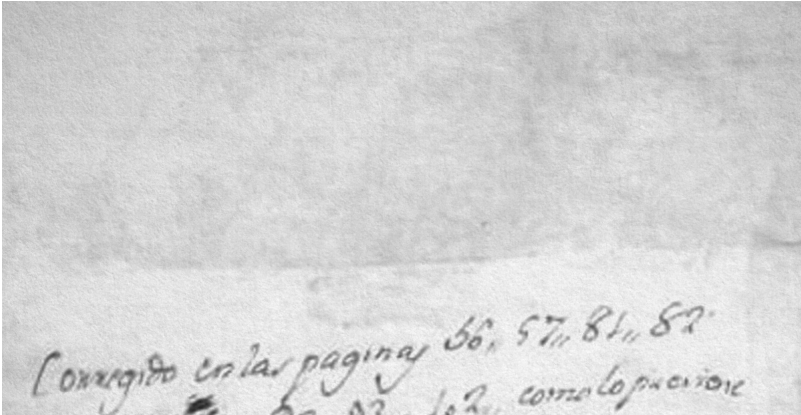 Corregido en las paginas 56,, 57,, 81,, 82
como lo previene